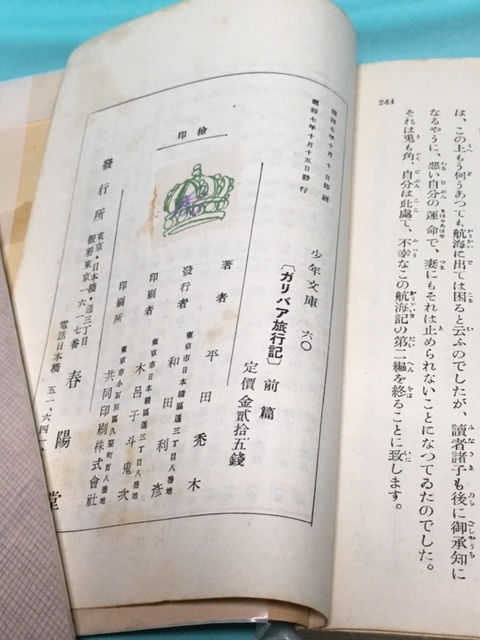 244
は、この上もう何うあつても航海に出ては困ると云ふのでしたが、讀者諸子も後に御承知に
なるやうに、悪い自分の運命で、妻にもそれは止められないことになつてゐたのでした。
それは兎も角、自分は此處で、不幸なこの航海記の第二編を終ることに致します。
昭和七年十月十日印刷
昭和七年十月十五日發行
少年文庫 六〇
〔ガリバア旅行記〕前篇
定價金貳拾五錢
檢印
著者 平田禿木
東京市日本橋區通三丁目八番地
發行者 和田利彦
東京市日本橋區通三丁目八番地
印刷者 木呂子斗鬼次
東京市小石川區久堅町百八番地
印刷所 共同印刷株式會社
發行所
東京・日本橋・通三丁目
振替東京一六一七番
春陽堂
電話日本橋 五一・六四